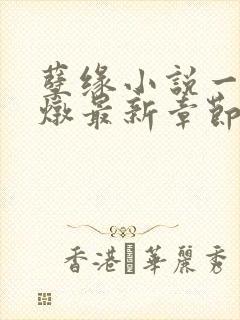 孽缘小説一
燉最新章節
香港 華麗秀